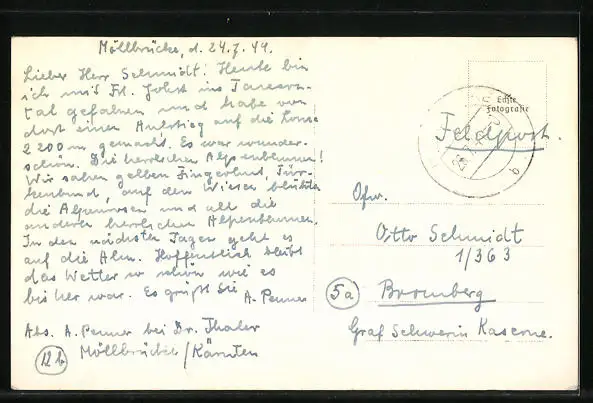 Möllbrücke, d. 24.7.44.
Lieber Herr Schmidt! Heute bin
ich mit Frl. Johst ins
tal gefahren und habe von
dort einen Aufstieg auf die
2200 m gemacht. Es war wunder-
schön. Die herrlichen Alpenblumen!
Wir sahen gelben Fingerhut, Tür-
kenbund, auf den Wiesen blühten
die Alpenrosen und all die
anderen herrlichen Alpenblumen.
In den nächsten Tagen geht es
auf die Alm. Hoffentlich bleibt
das Wetter so schön wie es
bisher war. Es grüßt Sie A. Penner
Abs. A. Penner bei Dr. Thaler
12b Möllbrücke/Kärnten
Echte
Fotografie
Feldpost.
Ofw.
Otto Schmidt
1/363
5a Bromberg
Graf Schwerin Kaserne.